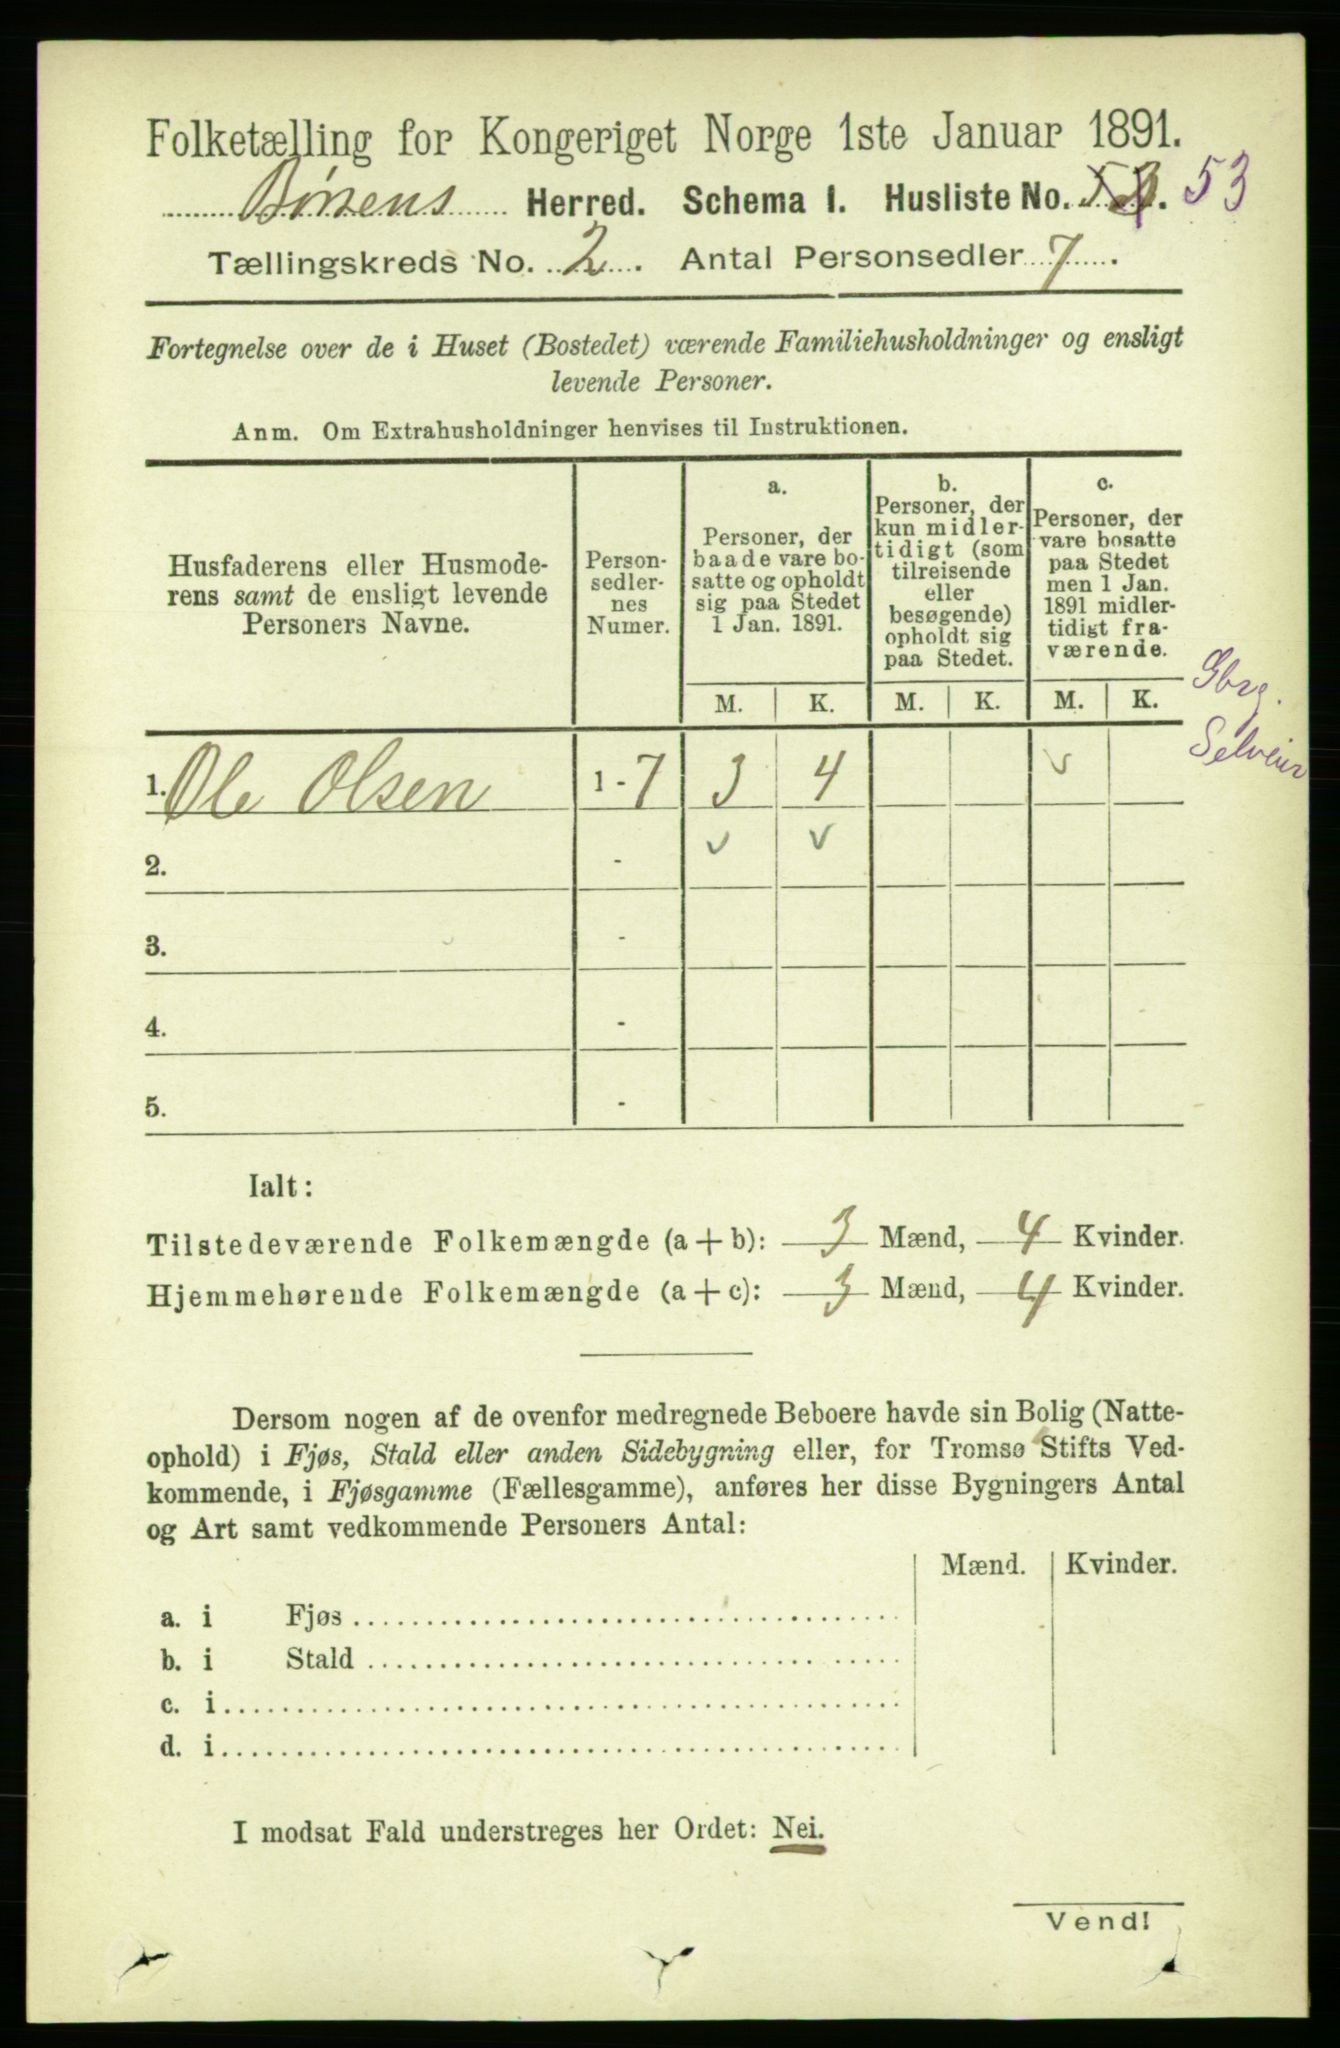 Folketælling for Kongeriget Norge 1ste Januar 1891.
Børsens Herred. Schema 1. Husliste No. 53
Tællingskreds No. 2. Antal Personsedler 7.
Fortegnelse over de i Huset (Bostedet) værende Familiehusholdninger og ensligt
levende Personer.
Anm. Om Extrahusholdninger henvises til Instruktionen.
Husfaderens eller Husmode-
rens samt de ensligt levende
Personers Navne.
Person-
sedler-
nes
Numer.
a.
Personer, der
baade vare bo-
satte og opholdt
sig paa Stedet
1 Jan. 1891.
b.
Personer, der
kun midler-
tidigt (som
tilreisende
eller
besøgende)
opholdt sig
paa Stedet.
c.
Personer, der
vare bosatte
paa Stedet
men 1 Jan.
1891 midler-
tidigt fra-
værende.
M. K. M. K. M. K.
Gbrg.
Selveier
1. Ole Olsen 1 - 7 3 4 v
2. - v v
3. -
4. -
5. -
Ialt:
Tilstedeværende Folkemængde (a + b): 3 Mænd, 4 Kvinder.
Hjemmehørende Folkemængde (a + c): 3 Mænd, 4 Kvinder.
Dersom nogen af de ovenfor medregnede Beboere havde sin Bolig (Natte-
ophold) i Fjøs, Stald eller anden Sidebygning eller, for Tromsø Stifts Ved-
kommende, i Fjøsgamme (Fællesgamme), anføres her disse Bygningers Antal
og Art samt vedkommende Personers Antal:
Mænd. Kvinder.
a. i Fjøs
b. i Stald
c. i
d. i
I modsat Fald understreges her Ordet: Nei.
Vend!